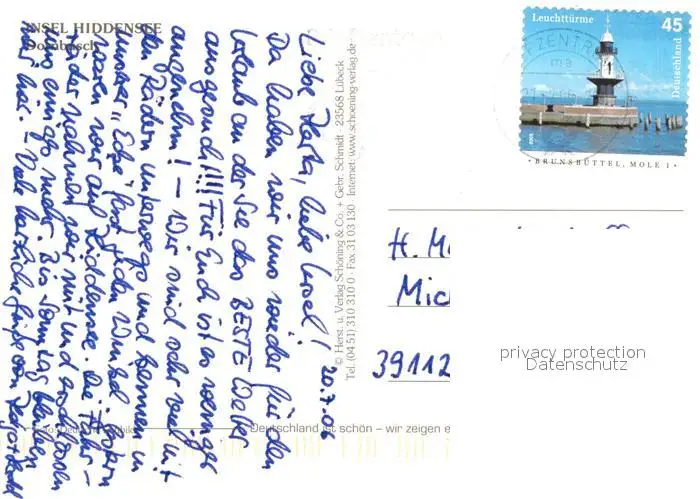 INSEL HIDDENSEE
Dornbusch
20.7.06
Liebe Herta, liebe Ursel!
Da haben wir uns wieder für den
Urlaub an der See das BESTE Wetter
ausgesucht!!!! Für Euch ist es weniger
angenehm! – Wir sind sehr viel mit
den Rädern unterwegs und kennen in
unserer "Ecke" fast jeden Winkel. Gestern
waren wir auf Hiddensee. Die Fahr-
räder nahmen wir mit und radelten
uns einiges mehr. Bis Sonntag bleiben
wir hier. – Viele herzliche Grüße von
© Herst. u. Verlag Schöning & Co. + Gebr. Schmidt · 23568 Lübeck
Tel. (04 51) 310 310 0 · Fax 31 03 130 · Internet: www.schoening-verlag.de
Deutschland ist schön – wir zeigen e
Leuchttürme
45
Deutschland
BRUNSBÜTTEL, MOLE 1
H. M
Mic
39112
privacy protection
Datenschutz